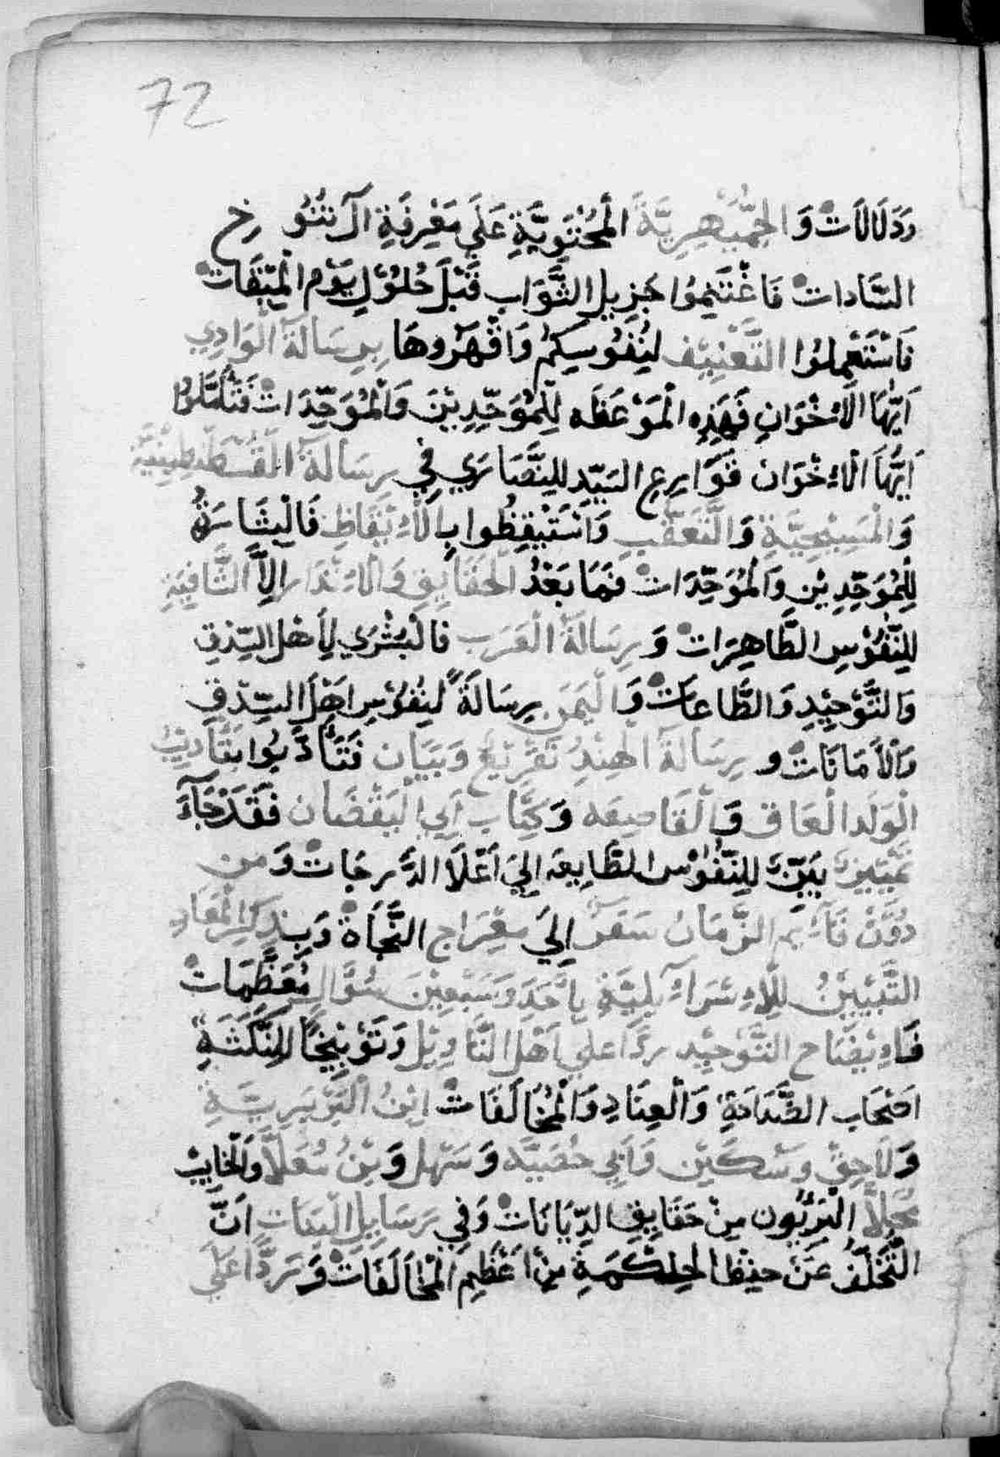 72
وَدَلَالَاتْ وَالجُمَيْهِرِيَّةَ الْمُحْتَوِيَّةِ عَلَي مَعْرِفَةِ آل تنُوُخِ
السَّادات فَاغْتَنِمُوا جَزِيل الثَّوَاب قَبْلَ حُلُوْلِ يَوْم الْمِيْقَات
فَاسْتَعْمِلوُا التَّعْنِيْف لِنُفُوسِكُمْ وَاقْهَرُوهَا بِرِسَالَة الوَادِي
اَيُّهَا الْاءِخْوَانِ فَهَذِهِ الْمَوْعَظَه لِلْمُوَحِّدِيْنَ وَالْمُوَحِّدَات فَتَأَمَّلُوا
اَيُّهَا الْاءِخْوَان قَوَارِع السَيّد لِلنَّصَارَي فِي رِسَالَة القُسْطَنْطِيْنِيَّة
وَالْمَسِيْحِيَّةِ وَالتَّعَقُّبِ وَاسْتَيْقِظُوا بِالْاءِيْقَاظِ فَالْبِشَارَةُ
لِلْمُوَحِّدِيْن وَالْمُوَحِّدَات فَمَا بَعْدُ الْحَقَايِقِ وَالْاءِنْذَار اِلَّا الشَّافِيَةِ
لِلنُّفُوْسِ الطَّاهِرَات وَرِسَالَةُ الْعَرَب فَالْبُشْرَي لِأَهْل السِّدْقِ
وَالتَّوْحِيْدِ وَالطَّاعَات وَالْيَمَن رِسَالَةً لِنُفُوْسِ اَهْلَ السِّدْقِ
وَالْأَمَانَات وَرِسَالَة الهِنْدِ تَقْرِيْعٌ وَبَيَان فَتَأَدَّبُوا بِتَأْدِيْبِ
الْوَلَد الْعَاق وَالْقَاصِعَه وَكِتَاب اَبِي الْيَقْضَان فَقَدْ جَآءَ
تَمْيِيْزٌ بَيِّنٌ لِلنُّفُوْس الطَّايِعَه اِلَي اَعْلَا الدَّرَجَات وَمن
دُوْنَ قَآئِم الزَّمَان سَفَرٌ اِلَي مِعْرَاج النَّجَاةْ وَبِذِكْرِ الْمَعَادِ
التَّبْيِيْنُ لِلْاءِسْرَاءِيْلِيَّةِ بِاَحَدَ وَسَبْعِيْنَ سُؤَالٍ مُعَظَّمَات
فَاءِيْضَاح التَّوْحِيْد رَدًّا عَلَي اَهْل التَّاوِيْل وَتَوْبِيْخًا لِلنَّكَثَةِ
اصْحَاب الضَّدَادَةِ وَالْعِنَادِ وَالْمُخَالَفَات اِبْنُ الْبَرْبَرِيَّةِ
وَلَاحِقٌ وَسْكَيْن وَابِي حُصَيَّه وَسَهْل وَبْنُ مُعَلَّا وَالْخَايِبْ
مُحِلَّا الْمُتَبَرِّيُون مِنْ حَقَايِقِ الدِّيَانَات وَفِي رَسَايِل الْبَنَاتِ اَنَّ
التَّخَلُّفُ عَنْ حِفْظ الْحِكْمَةِ مِنْ اَعْظَمِ الْمُخَالَفَاتْ وَرَدًّا عَلَي